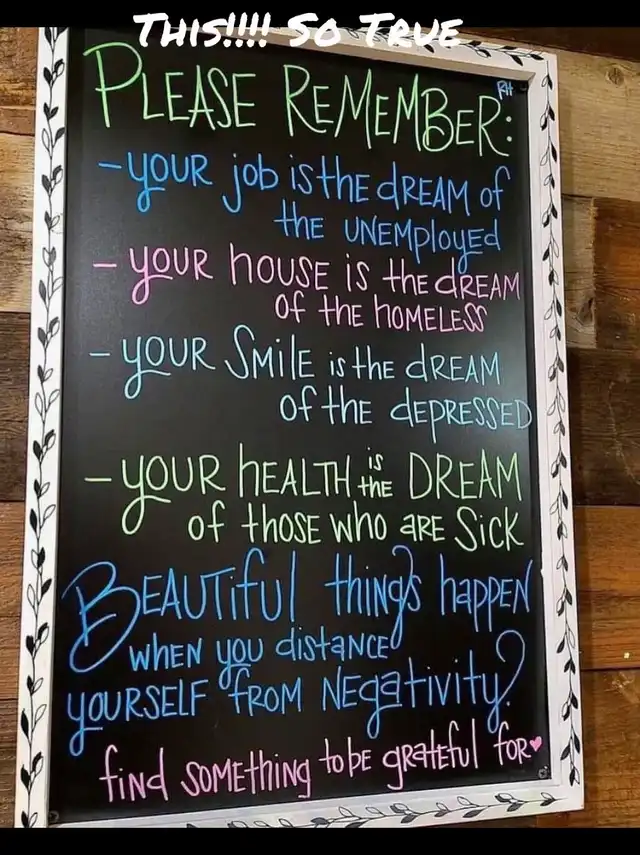 THIS!!!! SO TRUE
RH
PLEASE REMEMBER:
- YOUR job is the DREAM of
the UNEMployed
- YOUR house is the dREAM
of the homeless
- YOUR Smile is the dREAM
of the depressed
- YOUR hEALTH is the DREAM
of those who are Sick
BEAUTiful things happen
when you distance
yourself from Negativity?
find something to be grateful for♥